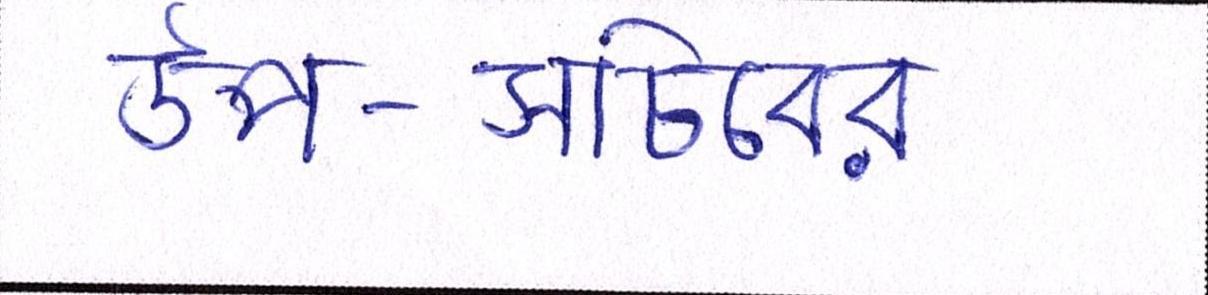 উপ-সচিবের